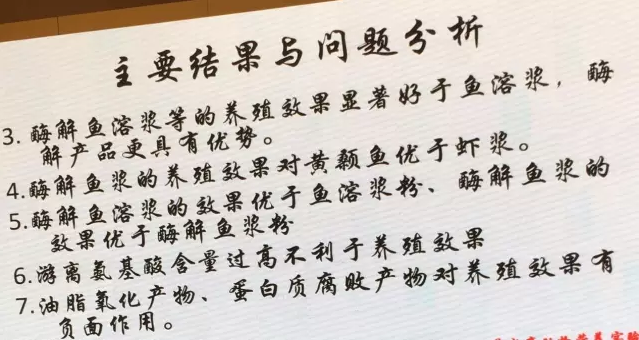 主要结果与问题分析
3. 酶解鱼溶浆等的养殖效果显著好于鱼溶浆，酶
解产品更具有优势。
4.酶解鱼浆的养殖效果对黄颡鱼优于虾浆。
5.酶解鱼溶浆的效果优于鱼溶浆粉、酶解鱼浆的
效果优于酶解鱼浆粉
6.游离氨基酸含量过高不利于养殖效果
7.油脂氧化产物、蛋白质腐败产物对养殖效果有
负面作用。